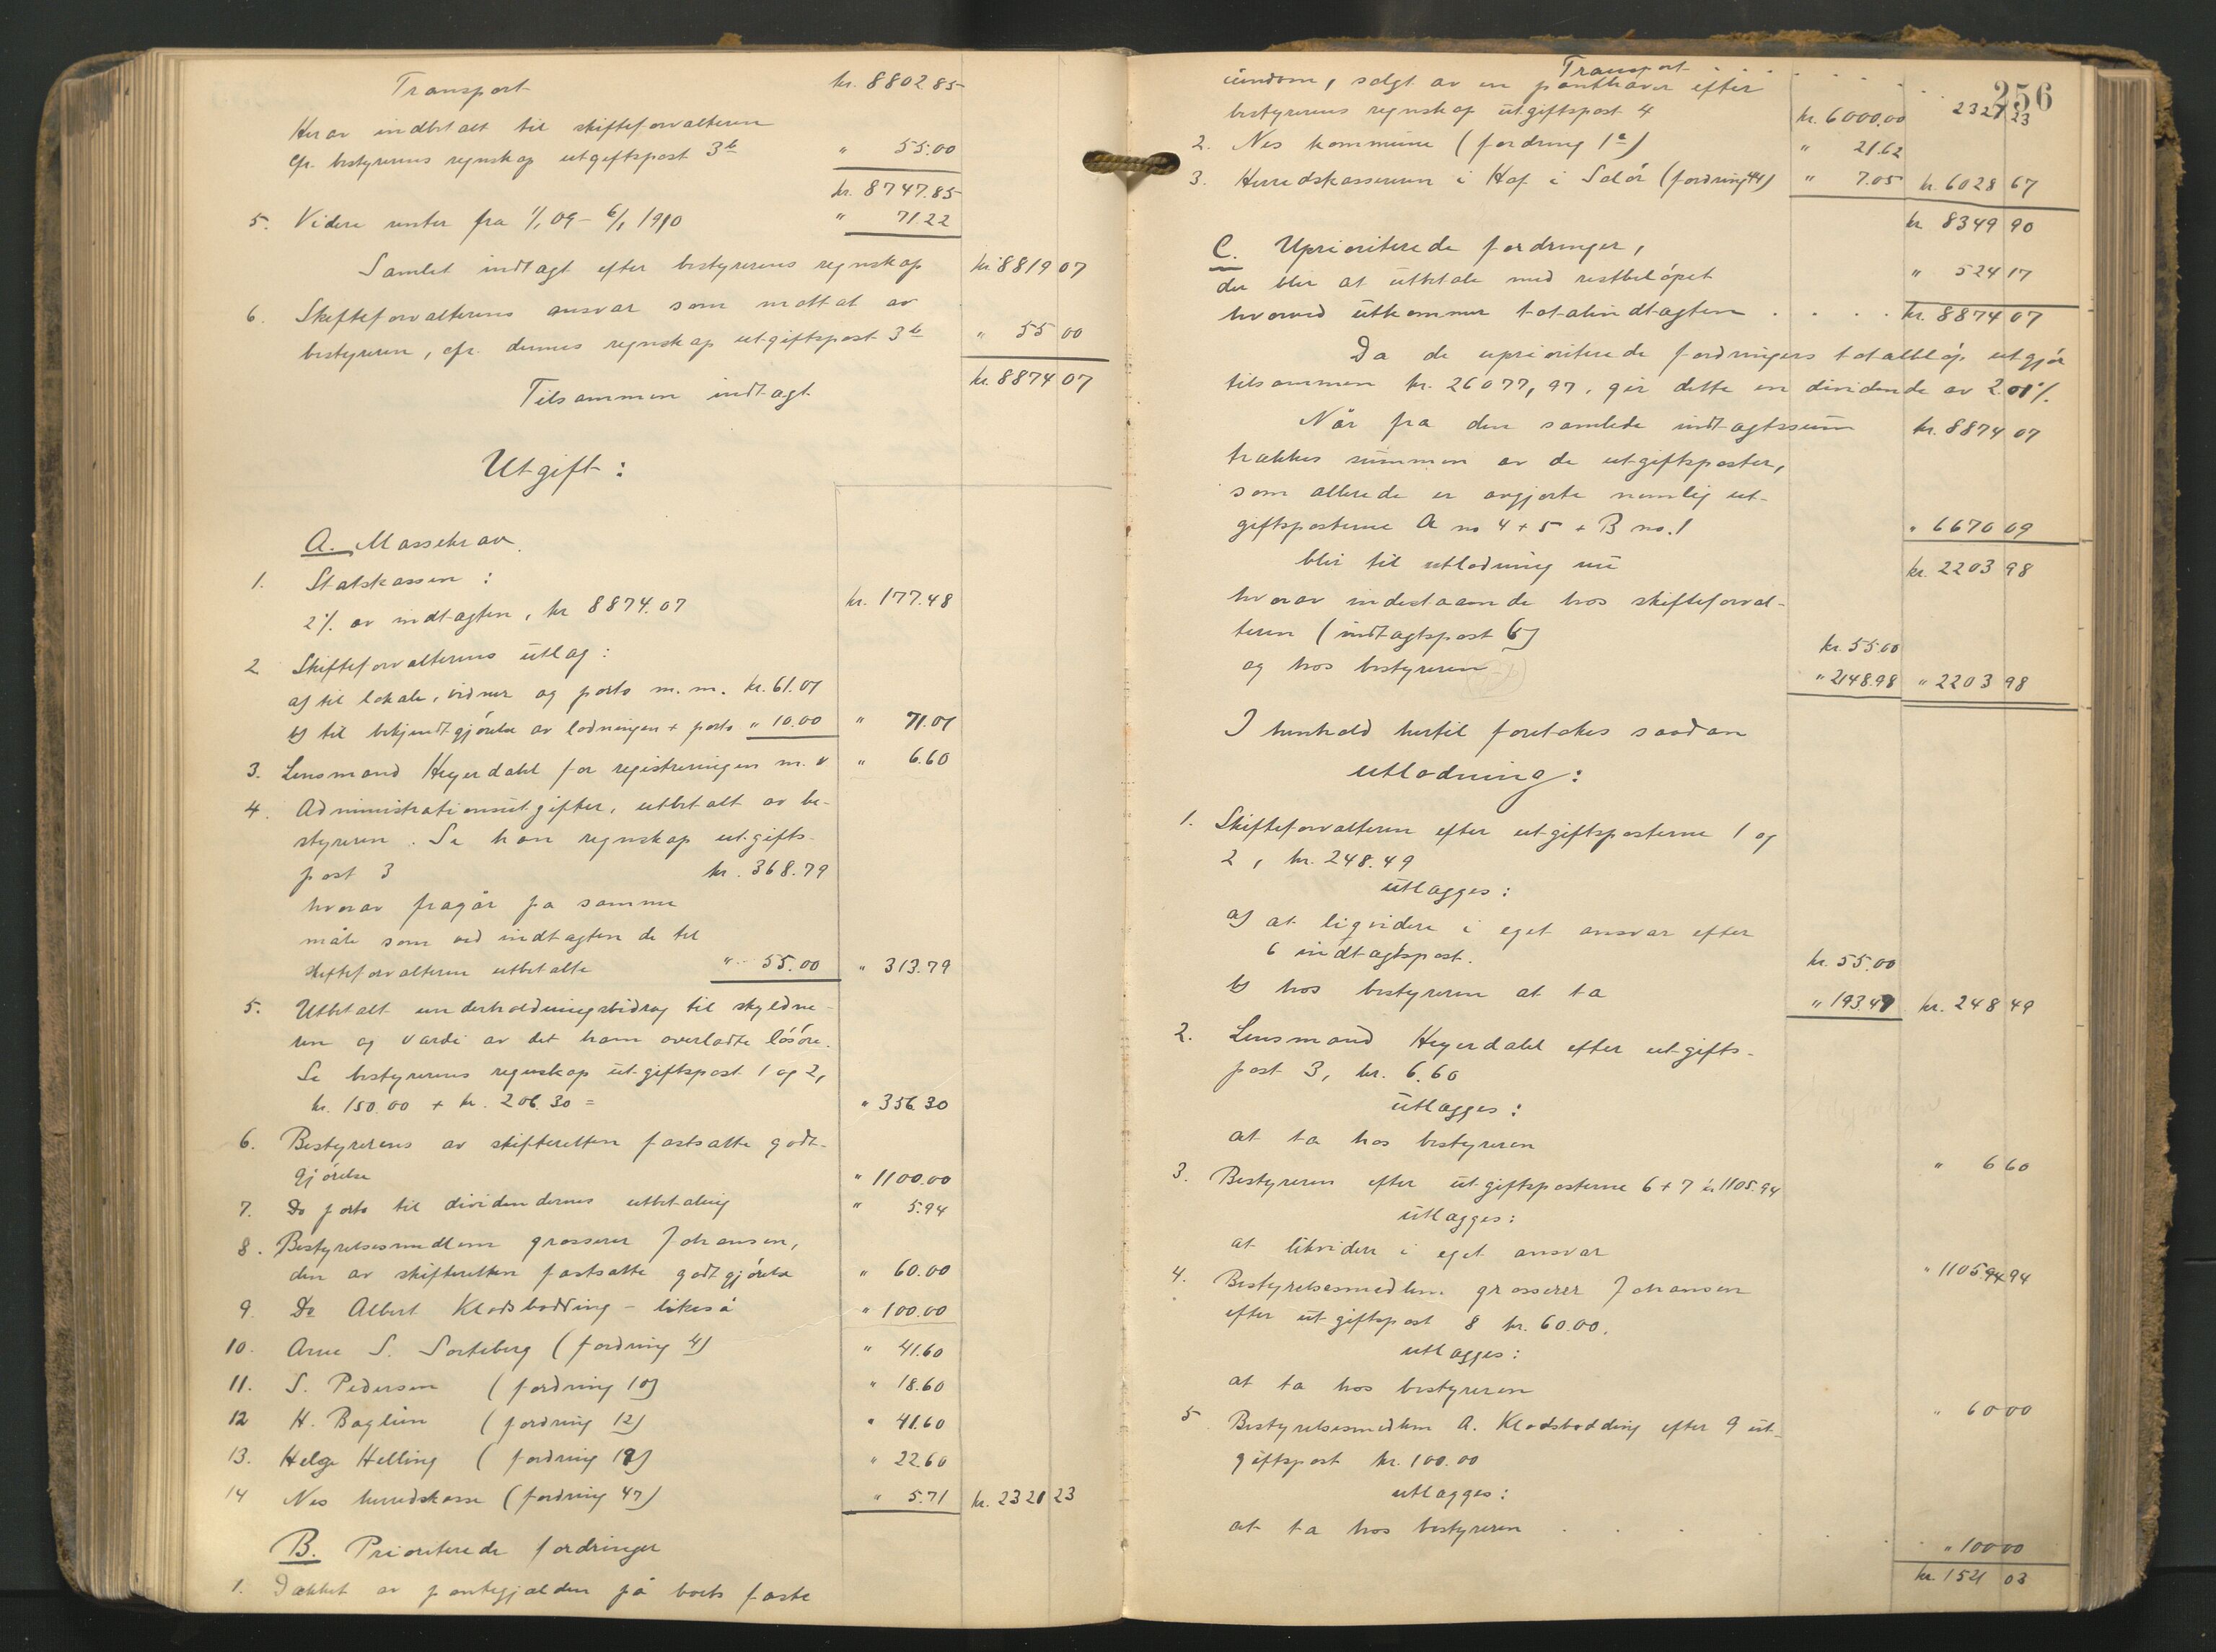 Transport kr. 8802 85
Herav indbetalt til skifteforvalteren
cfr. bestyrerens regnskap utgiftspost 3b " 55.00
kr. 8747.85
5. Videre renter fra 1/1 09 - 6/1 1910 " 71.22
Samlet indtægt efter bestyrerens regnskap kr. 8819 07
6. Skifteforvalterens ansvar som mottat av
bestyreren, cfr. dennes regnskap utgiftspost 3b " 55 00
Tilsammen indtægt kr. 8874 07
Utgift:
A. Massekrav.
1. Statskassen:
2% av indtægten, kr 8874.07 kr. 177.48
2 Skifteforvalterens utlæg:
a) til lokale, vidner og porto m.m. kr. 61.01
b) til bekjendtgjørelse av lodningen + porto " 10.00 " 71.01
3. Lensmand Heyerdahl for registreringen m.v " 6.60
4. Administrationsutgifter, utbetalt av be-
styreren. Se han regnskap utgifts-
post 3 kr. 368.79
hvorav fragår pa samme
måte som ved indtægten de til
skifteforvalteren utbetalte " 55.00 " 313.79
5. Utbetalt underholdningsbidrag til skyldne-
ren og værdi av det ham overlatte løsøre.
Se bestyrerens regnskap utgiftspost 1 og 2,
kr. 150.00 + kr. 206.30 = " 356.30
6. Bestyrerens av skifteretten fastsatte godt-
gjørelse " 1100.00
7. Do porto til dividendernes utbetaling " 5.94
8. Bestyrelsesmedlem grosserer Johansen,
den av skifteretten fastsatte godtgjørelse " 60.00
9. Do Albert Kladsbødding - likeså " 100.00
10. Arne S. Sorteberg (fordring 4) " 41.60
11. S. Pedersen (fordring 10) " 18.60
12 H. Baglien (fordring 12) " 41.60
13. Helge Helling (fordring 19) " 22.60
14 Nes herredskasse (fordring 47) " 5.71 kr. 2321 23
B. Prioriterede fordringer
1. Dækket av pantegjælden på boets faste
256
Transport . . . . . . 2321 23
eiendom, solgt av en panthaver efter
bestyrerens regnskap utgiftspost 4 kr. 6000.00
2. Nes kommune (fordring 1a) " 21.62
3. Herredskassereren i Hof i Solør (fordring 44) " 7.05 kr. 6028 67
kr 8349 90
C. Uprioriterede fordringer,
der blir at utbetale med restbeløpet " 524 17
hvorved utkommer totalindtægten . . . . kr. 8874 07
Da de uprioriterede fordringers totalbeløp utgjør
tilsammen kr. 26077,97, gir dette en dividende av 2.01%.
Når fra den samlede indtægtssum kr. 8874 07
trækkes summen av de utgiftsposter,
som allerede er avgjorte nemlig ut-
giftsposterne A no 4 + 5 + B no. 1 " 6670 09
blir til utlodning nu kr. 2203 98
hvorav indestaaende hos skifteforval-
teren (indtægtspost 6) kr. 55.00
og hos bestyreren " 2148.98 " 2203 98
I henhold hertil foretakes saadan
utlodning:
1. Skifteforvalteren efter utgiftsposterne 1 og
2, kr. 248.49
utlægges:
a) at liqvidere i eget ansvar efter
6 indtægtspost. kr. 55.00
b) hos bestyreren at ta " 193.49 kr. 248 49
2. Lensmand Heyerdahl efter utgifts-
post 3, kr. 6.60
utlægges:
at ta hos bestyreren " 6 60
3. Bestyreren efter utgiftsposterne 6 + 7 kr 1105.94
utlægges:
at likvidere i eget ansvar " 1105 94
4. Bestyrelsesmedlem grosserer Johansen
efter utgiftspost 8 kr. 60.00.
utlægges:
at ta hos bestyreren " 60 00
5. Bestyrelsesmedlem A. Kladsbødding efter 9 ut-
giftspost kr. 100.00
utlægges:
at ta hos bestyreren . . . . . " 100 00
kr. 1521 03